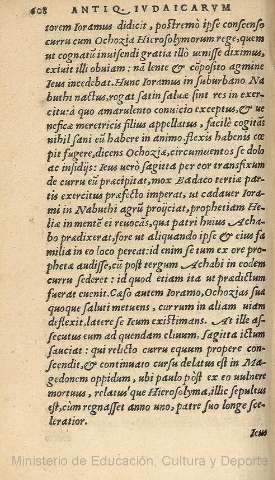 608 ANTIQ. IVDAICARVM
torem Ioramus didicit, postremò ipse conscenso
curru cum Ochozia Hierosolymorum rege, quem
ut cognatũ inuisendi gratia illò uenisse diximus,
exiuit illi obuiam: nã lentè & cõposito agmine
Ieus incedebat. Hunc Ioramus in suburbano Na
buthi nactus, rogat satin saluæ sint res in exer-
citu: à quo amarulento conuicio exceptus, & ue
nefica meretricis filius appellatus, facilè cogitãs
nihil sani eũ habere in animo, flexis habenis cœ
pit fugere, dicens Ochoziæ, circumuentos se dolo
ac insidijs: Ieus uerò sagitta per cor transfixum
de curru eũ præcipitat, mox Badaco tertiæ par-
tis exercitus præfecto imperat, ut cadauer Iora-
mi in Nabuthi agrũ proijciat, prophetiam He-
liæ in mentẽ ei reuocãs, qua patri huius Acha-
bo prædixerat, fore ut aliquando ipse & eius fa
milia in eo loco pereat: id enim se tum ex ore pro-
phetæ audisse, cũ post tergum Achabi in eodem
curru sederet: id quod etiam ita ut prædictum
fuerat euenit. Cæso autem Ioramo, Ochozias suæ
quoque saluti metuens, currum in aliam uiam
deflexit, latere se Ieum existimans. At ille as-
secutus eum ad quendam cliuum, sagitta ictum
sauciat: qui relicto curru equum propere con-
scendit, & continuato cursu delatus est in Ma-
gedonem oppidum, ubi paulo pòst ex eo uulnere
mortuus, relatusque Hierosolyma, illic sepultus
est, cùm regnasset anno uno, patre suo longe sce-
leratior.
Ieus
Ministerio de Educación, Cultura y Deporte